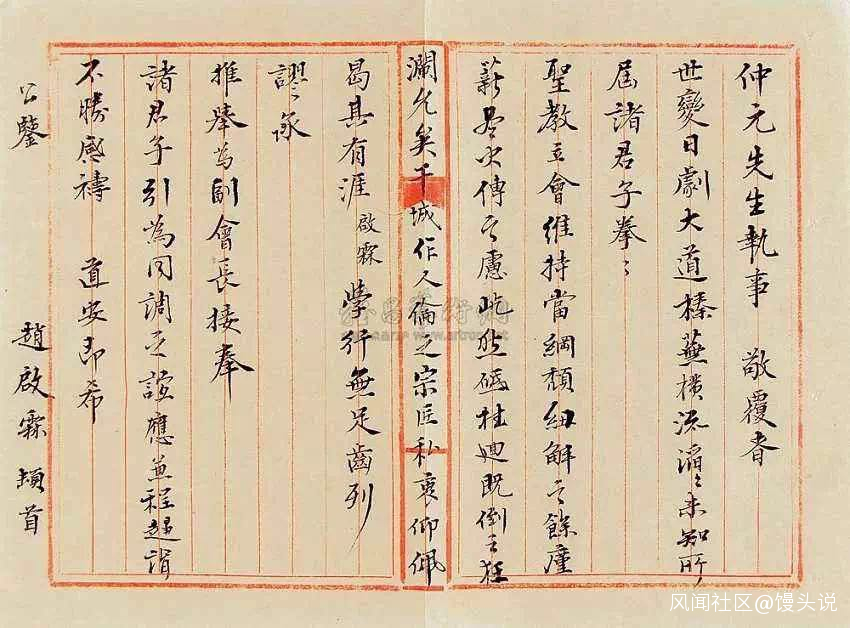 仲元先生執事 敬覆者
世變日劇大道榛蕪橫流滔〻未知所
屆諸君子拳〻
聖教立會維持當綱頹紐解之餘廑
薪盡火傳之慮屹然砥柱迴既倒之狂
瀾允矣干城作人倫之宗匠私衷仰佩
曷其有涯啟霖學行無足齒列
謬承
推舉為副會長接奉
諸君子引為同調之誼應兼程趨詣
不勝感禱 道安即希
公鑒 趙啟霖頓首
风闻社区@馒头说